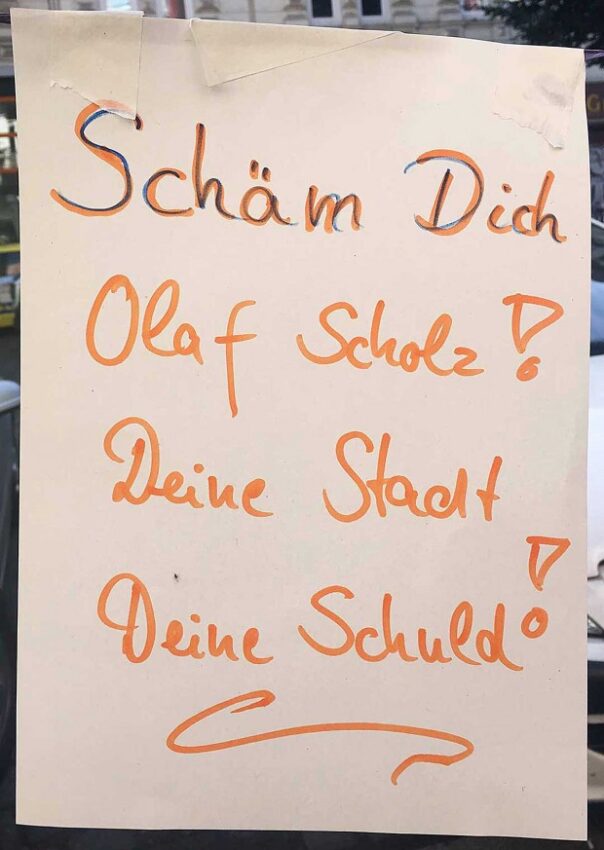 Schäm Dich
Olaf Scholz!
Deine Stadt
Deine Schuld!